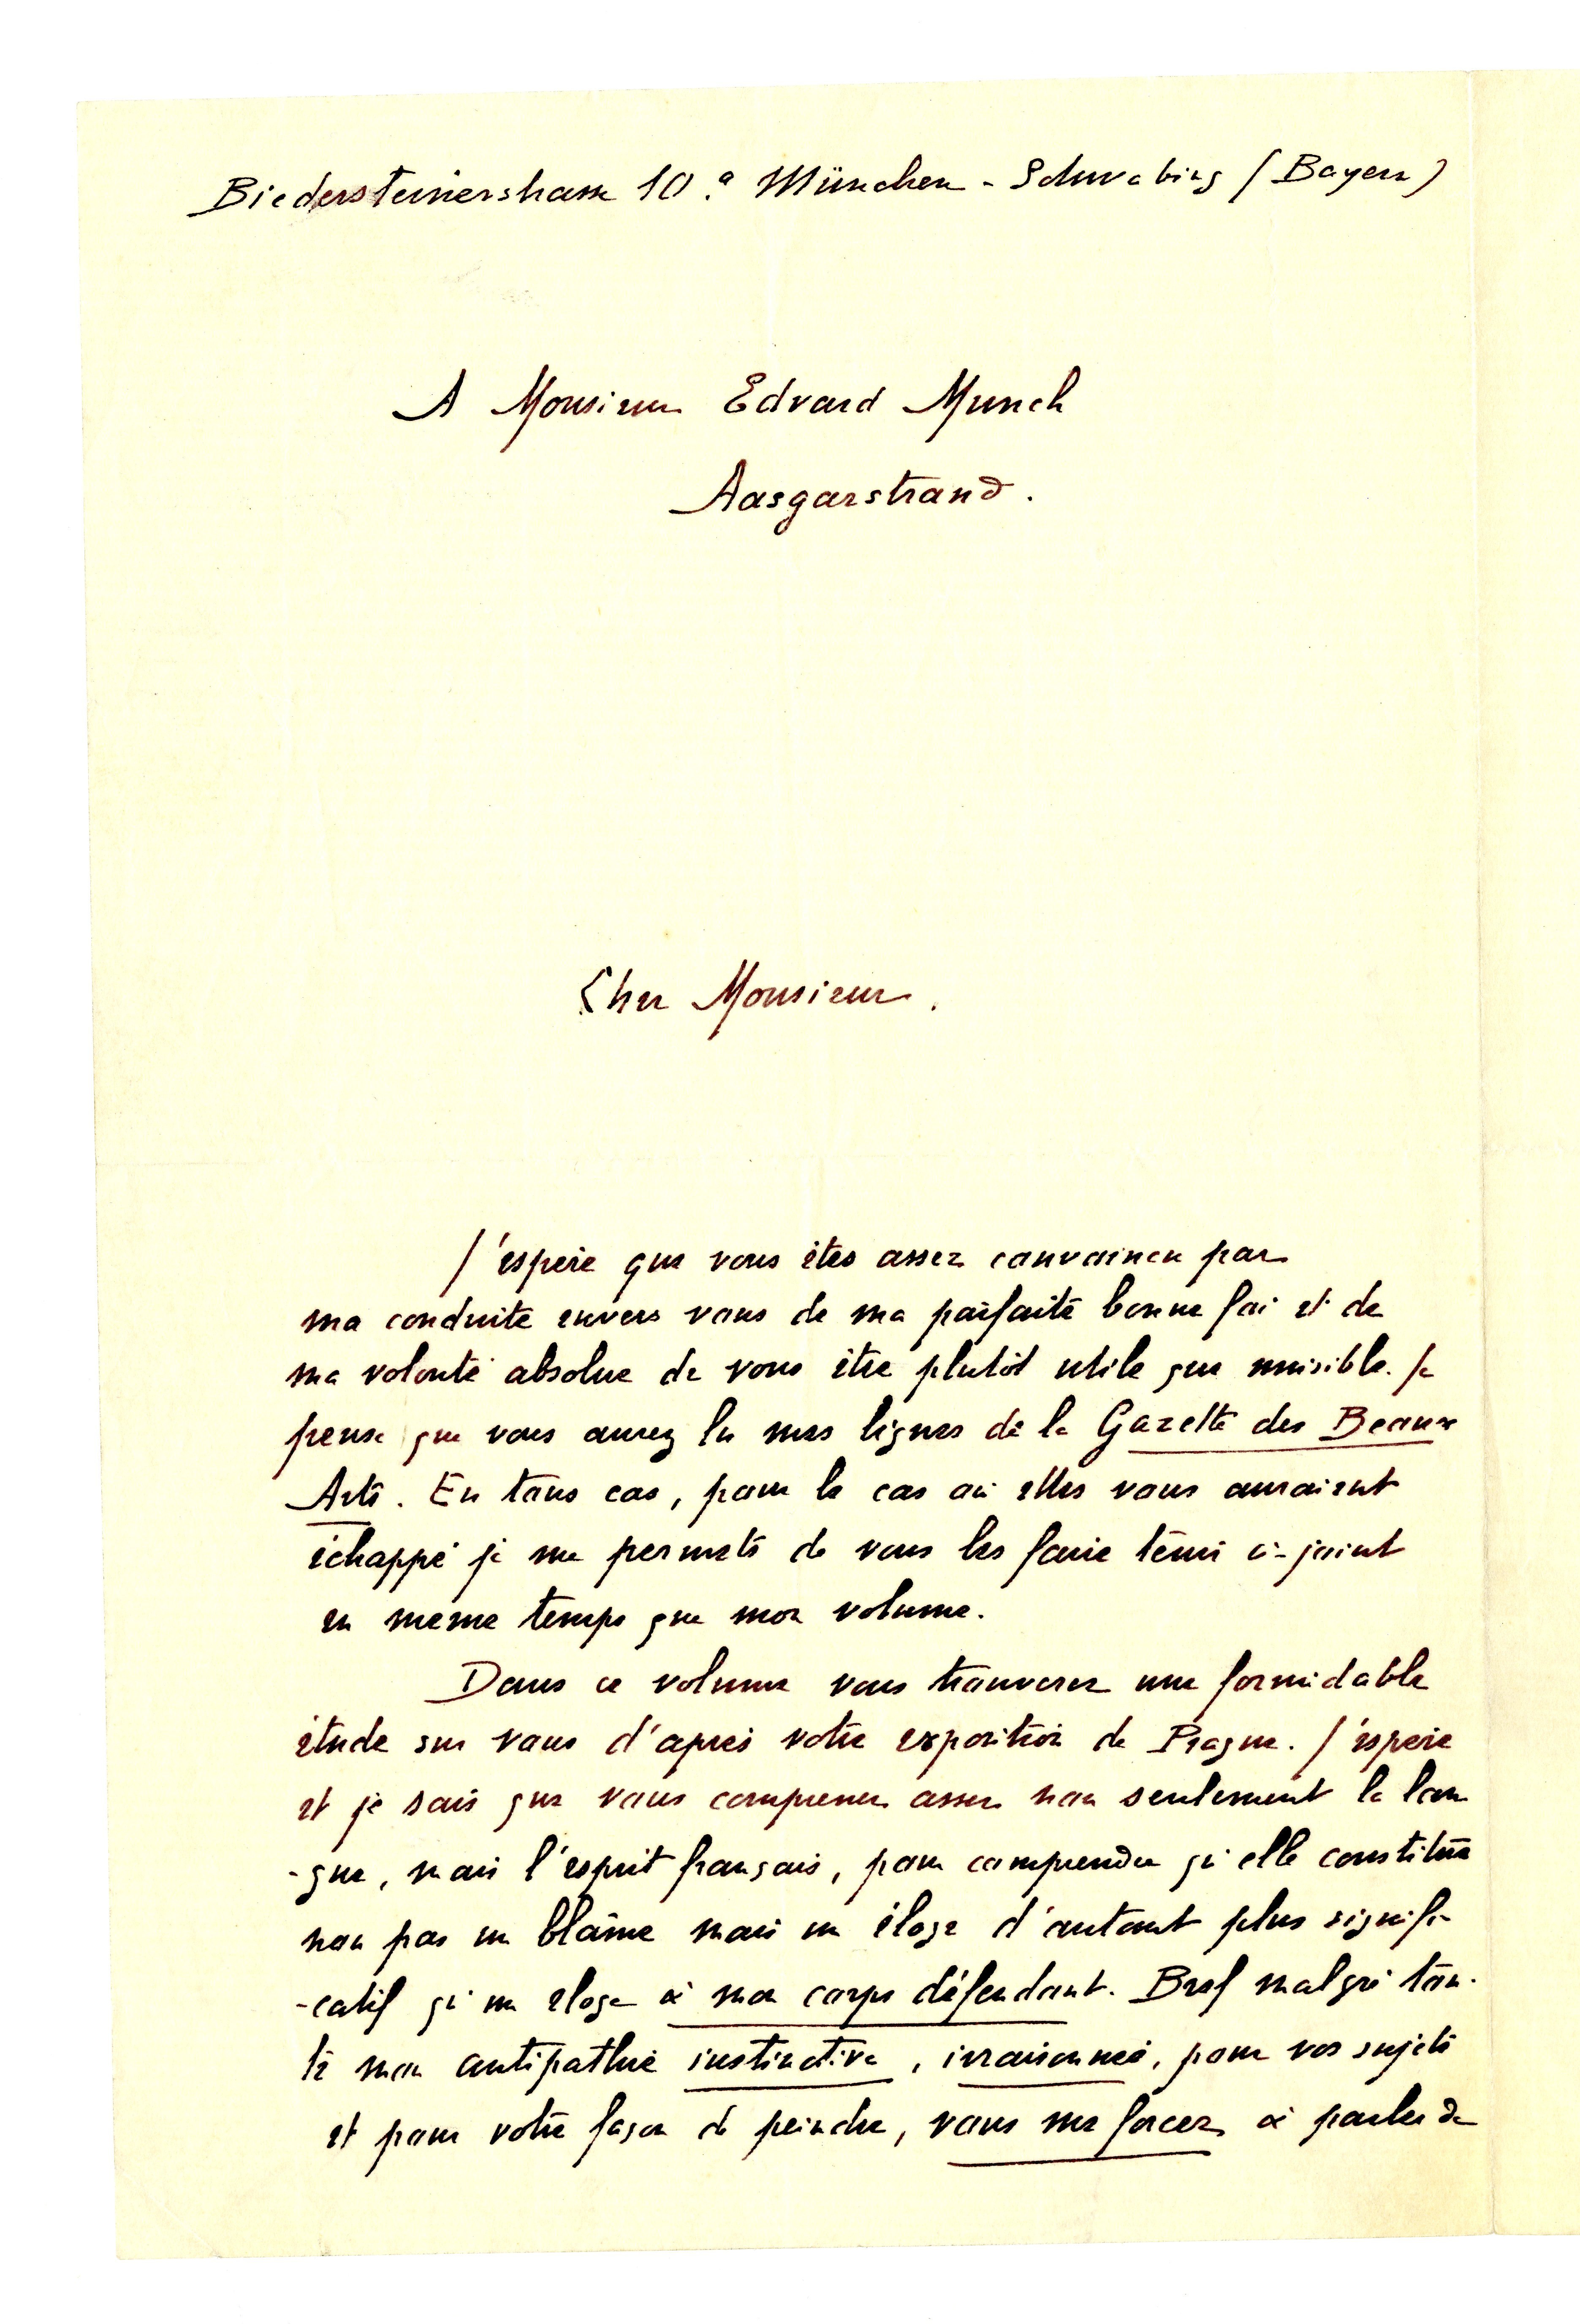 Biedersteinerstrasse 10.a München - Schwabing (Bayern)
A Monsieur Edvard Munch
Aasgarstrand.
Cher Monsieur.
J'espère que vous êtes assez convaincu par
ma conduite envers vous de ma parfaite bonne foi et de
ma volonté absolue de vous être plutôt utile que nuisible. Je
pense que vous aurez lu mes lignes de la Gazette des Beaux
Arts. En tous cas, pour le cas où elles vous auraient
échappé je me permets de vous les faire tenir ci-joint
en meme temps que mon volume.
Dans ce volume vous trouverez une formidable
étude sur vous d'après votre exposition de Prague. J'espère
et je sais que vous comprenez assez non seulement la lan
-gue, mais l'esprit français, pour comprendre qu'elle constitue
non pas un blâme mais un éloge d'autant plus signifi-
-catif qu'un éloge à mon corps défendant. Bref malgré tou-
te mon antipathie instinctive, irraisonnée, pour vos sujets
et pour votre façon de peindre, vous me forcez à parler de